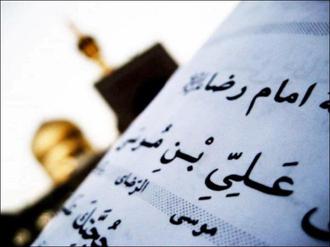 امام رضا
عَلِیِّ بْنِ مُوسَی
الرضا
موسی
حُجَّتِكَ